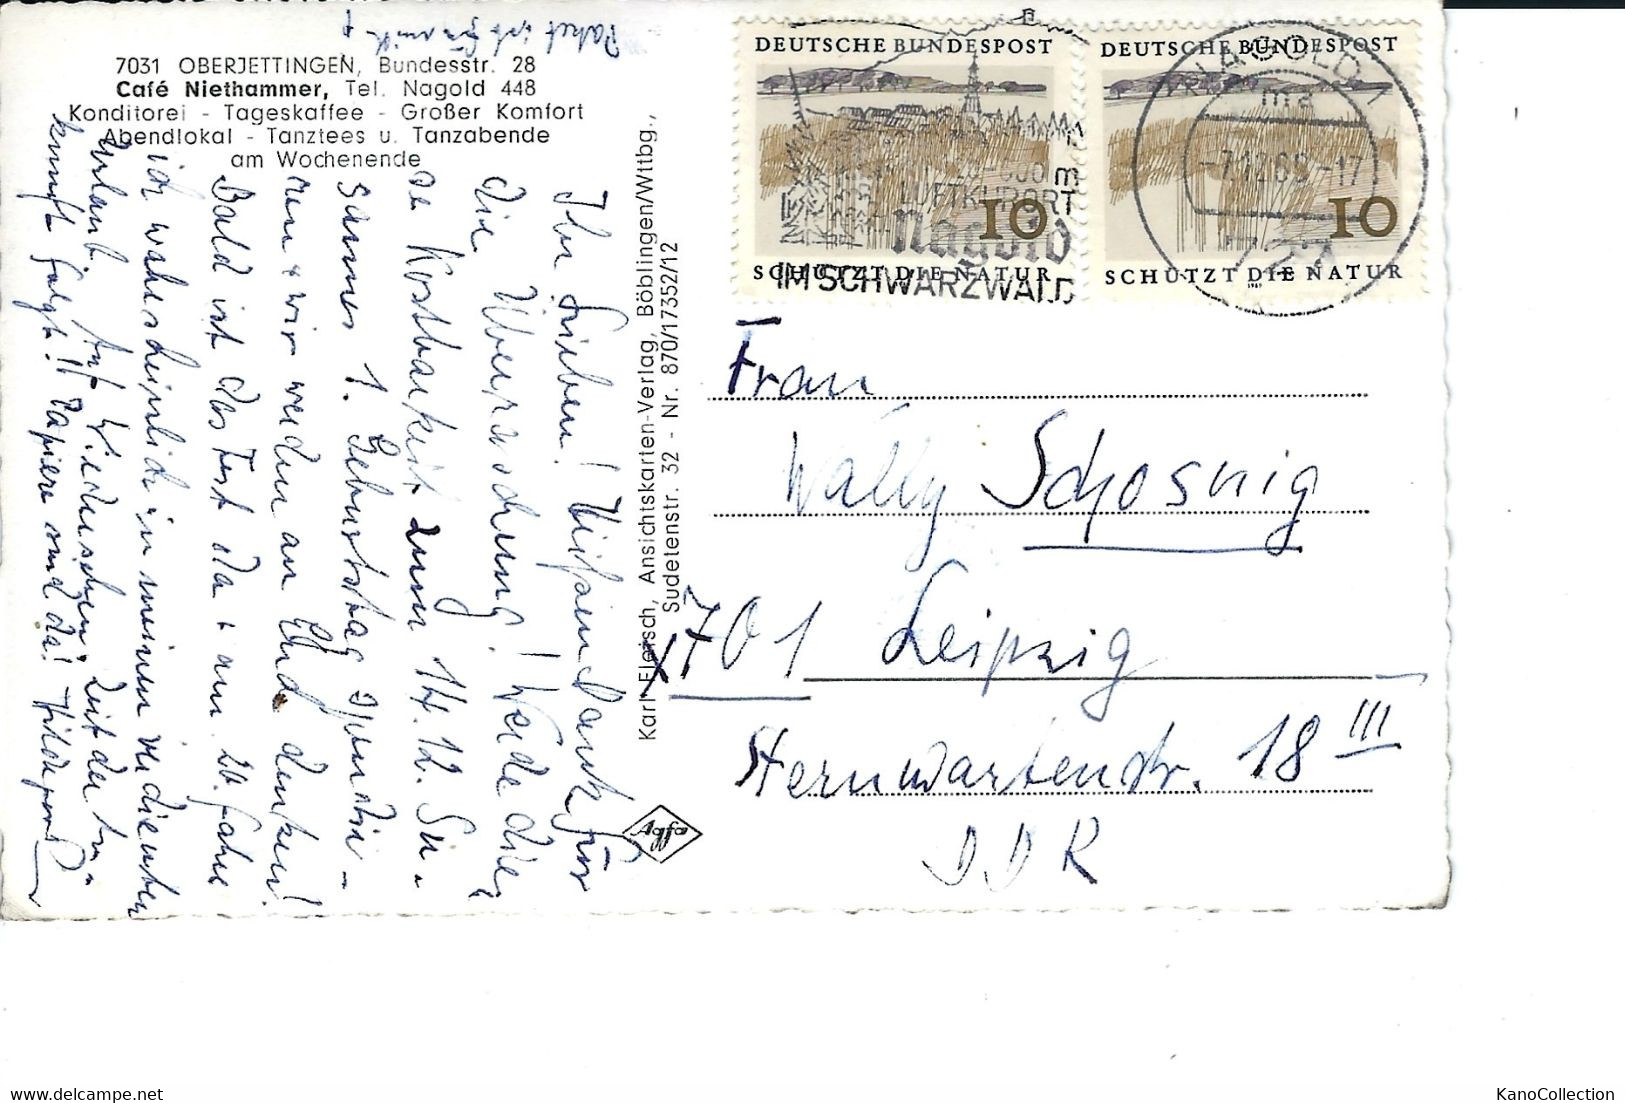 7031 OBERJETTINGEN, Bundesstr. 28
Café Niethammer, Tel. Nagold 448
Konditorei - Tageskaffee - Großer Komfort
Abendlokal - Tanztees u. Tanzabende
am Wochenende
Ihr Lieben! Tausend Dank für
die Überraschung! Werde diese
Kostbarkeit zum 14.12.
1. Geburtstag
wir werden an Euch denken!
Bald ist das Fest da + am 20. fahre
ich wahrscheinlich in meinen verdienten
Urlaub. Auf Wiedersehen,
kunft folgt!! Papiere sind da!
Paket ist
Karl Fleisch, Ansichtskarten-Verlag, Böblingen/Wttbg.,
Sudetenstr. 32 - Nr. 870/17352/12
Agfa
DEUTSCHE BUNDESPOST
10
SCHÜTZT DIE NATUR
DEUTSCHE BUNDESPOST
10
SCHÜTZT DIE NATUR
1969
LUFTKURORT
Nagold
IM SCHWARZWALD
NAGOLD 1
ma
-7.12.69-17
727
Frau
Wally Schosnig
X 701 Leipzig
Sternwartenstr. 18 III
DDR
KanoCollection
delcampe.net